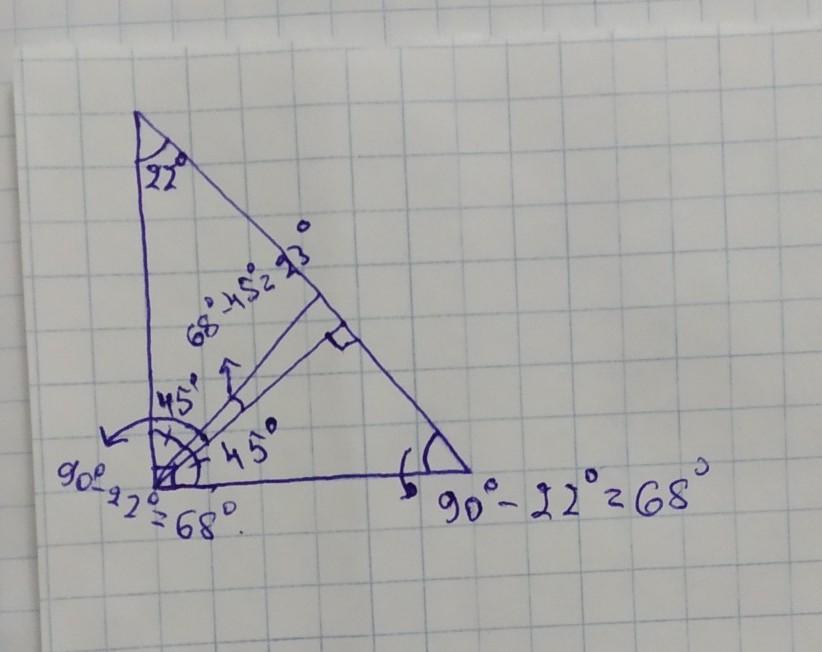 22°
68°-45°=23°
45°
45°
90°-22°=68°.
90°-22°=68°